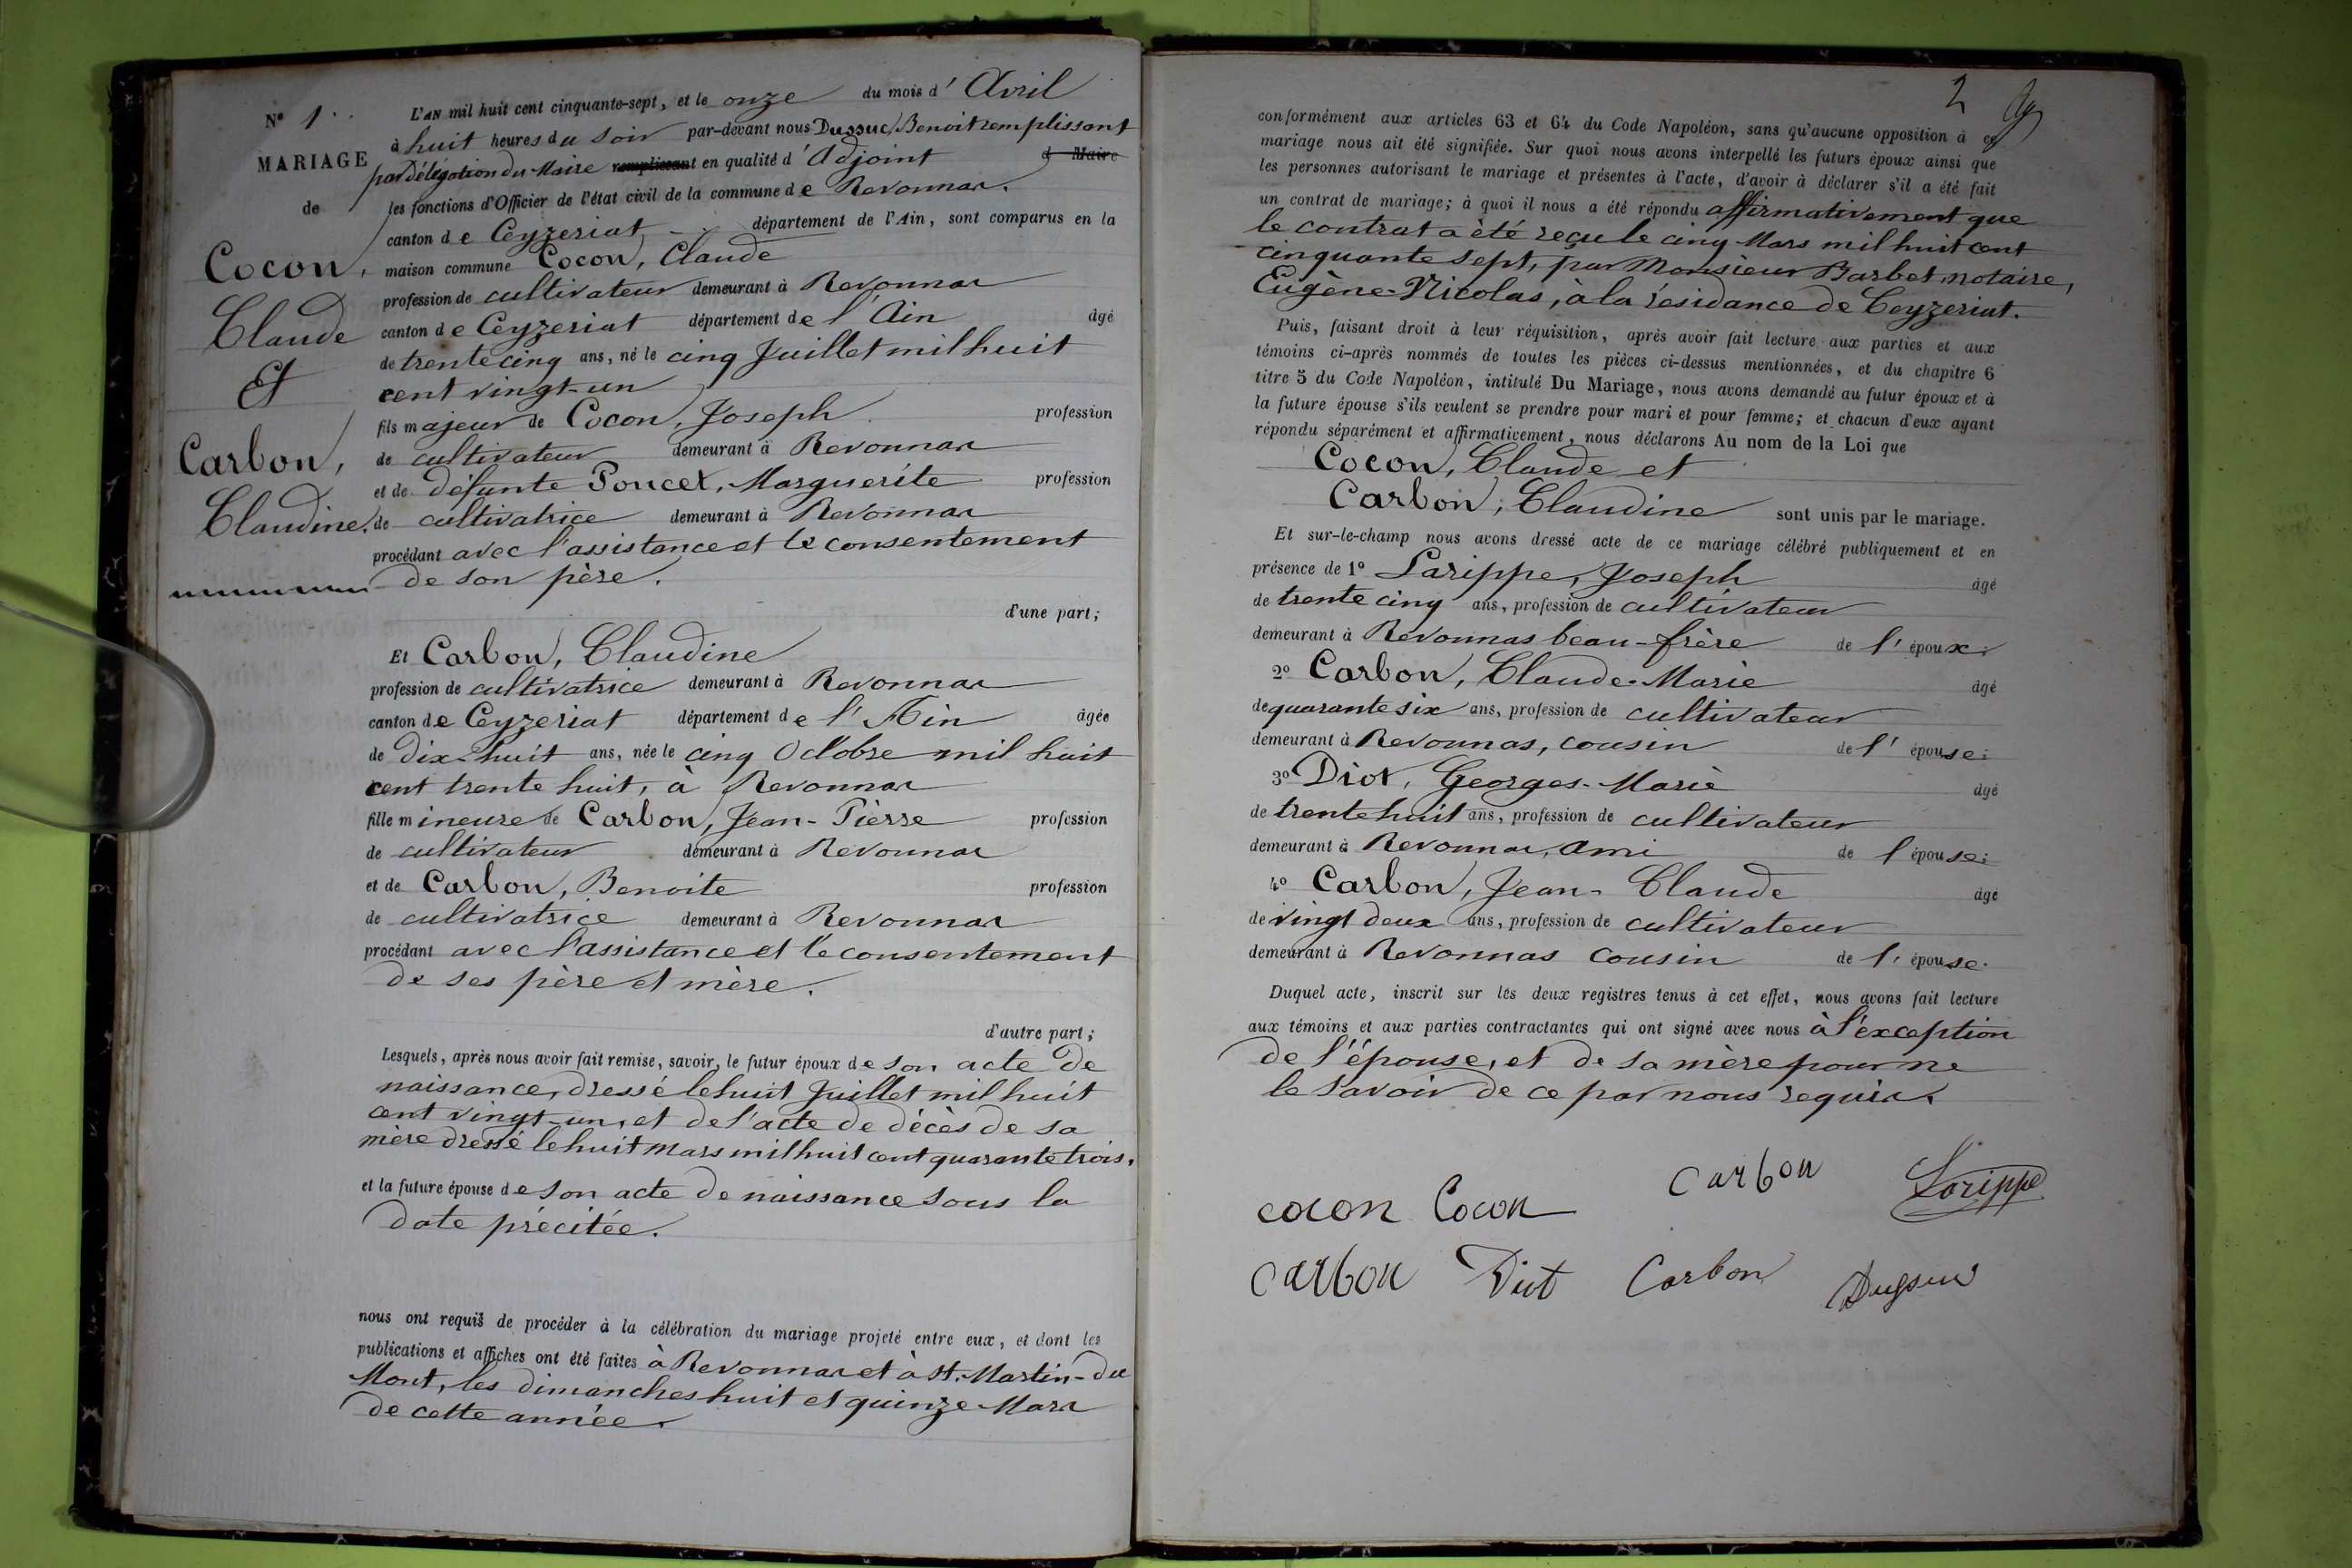 Nº 1
MARIAGE
de
Cocon,
Claude
Et
Carbon,
Claudine.
L'AN mil huit cent cinquante-sept, et le onze du mois d'Avril
à huit heures du soir par-devant nous Dussuc, Benoit remplissant
par Délégation du Maire remplissant en qualité d'Adjoint d Maire
les fonctions d'Officier de l'état civil de la commune de Revonnas.
canton de Ceyzeriat département de l'Ain, sont comparus en la
maison commune Cocon, Claude
profession de cultivateur demeurant à Revonnas
canton de Ceyzeriat département de l'Ain âgé
de trente cinq ans, né le cinq Juillet mil huit
cent vingt-un
fils majeur de Cocon, Joseph profession
de cultivateur demeurant à Revonnas
et de défunte Poncet, Marguerite profession
de cultivatrice demeurant à Revonnas
procédant avec l'assistance et le consentement
de son père.
d'une part;
Et Carbon, Claudine
profession de cultivatrice demeurant à Revonnas
canton de Ceyzeriat département de l'Ain âgée
de Dix-huit ans, née le cinq Octobre mil huit
cent trente huit, à Revonnas
fille mineure de Carbon, Jean-Pierre profession
de cultivateur demeurant à Revonnas
et de Carbon, Benoite profession
de cultivatrice demeurant à Revonnas
procédant avec l'assistance et le consentement
de ses père et mère.
d'autre part;
Lesquels, après nous avoir fait remise, savoir, le futur époux de son acte de
naissance, dressé le huit Juillet mil huit
cent vingt-un, et de l'acte de décès de sa
mère dressé le huit Mars mil huit cent quarante trois,
et la future épouse de son acte de naissance sous la
date précitée.
nous ont requis de procéder à la célébration du mariage projeté entre eux, et dont les
publications et affiches ont été faites à Revonnas et à St. Martin-du
Mont, les dimanches huit et quinze Mars
de cette année.
2
conformément aux articles 63 et 64 du Code Napoléon, sans qu'aucune opposition à ce
mariage nous ait été signifiée. Sur quoi nous avons interpellé les futurs époux ainsi que
les personnes autorisant le mariage et présentes à l'acte, d'avoir à déclarer s'il a été fait
un contrat de mariage; à quoi il nous a été répondu affirmativement que
le contrat a été reçu le cinq Mars mil huit cent
cinquante sept, par Monsieur Barbet, notaire,
Eugène-Nicolas, à la résidance de Ceyzeriat.
Puis, faisant droit à leur réquisition, après avoir fait lecture aux parties et aux
témoins ci-après nommés de toutes les pièces ci-dessus mentionnées, et du chapitre 6
titre 5 du Code Napoléon, intitulé Du Mariage, nous avons demandé au futur époux et à
la future épouse s'ils veulent se prendre pour mari et pour femme; et chacun d'eux ayant
répondu séparément et affirmativement, nous déclarons Au nom de la Loi que
Cocon, Claude et
Carbon, Claudine sont unis par le mariage.
Et sur-le-champ nous avons dressé acte de ce mariage célébré publiquement et en
présence de 1º Larippe, Joseph âgé
de trente cinq ans, profession de cultivateur
demeurant à Revonnas beau-frère de l'époux;
2º Carbon, Claude-Marie âgé
de quarante six ans, profession de cultivateur
demeurant à Revonnas, cousin de l'épouse;
3º Diot, Georges-Marie âgé
de trente huit ans, profession de cultivateur
demeurant à Revonnas, ami de l'épouse;
4º Carbon, Jean-Claude âgé
de vingt deux ans, profession de cultivateur
demeurant à Revonnas cousin de l'épouse.
Duquel acte, inscrit sur les deux registres tenus à cet effet, nous avons fait lecture
aux témoins et aux parties contractantes qui ont signé avec nous à l'exception
de l'épouse, et de sa mère pour ne
le savoir de ce par nous requis.
cocon Cocon carbon Larippe
carbon Diot Carbon Dussuc